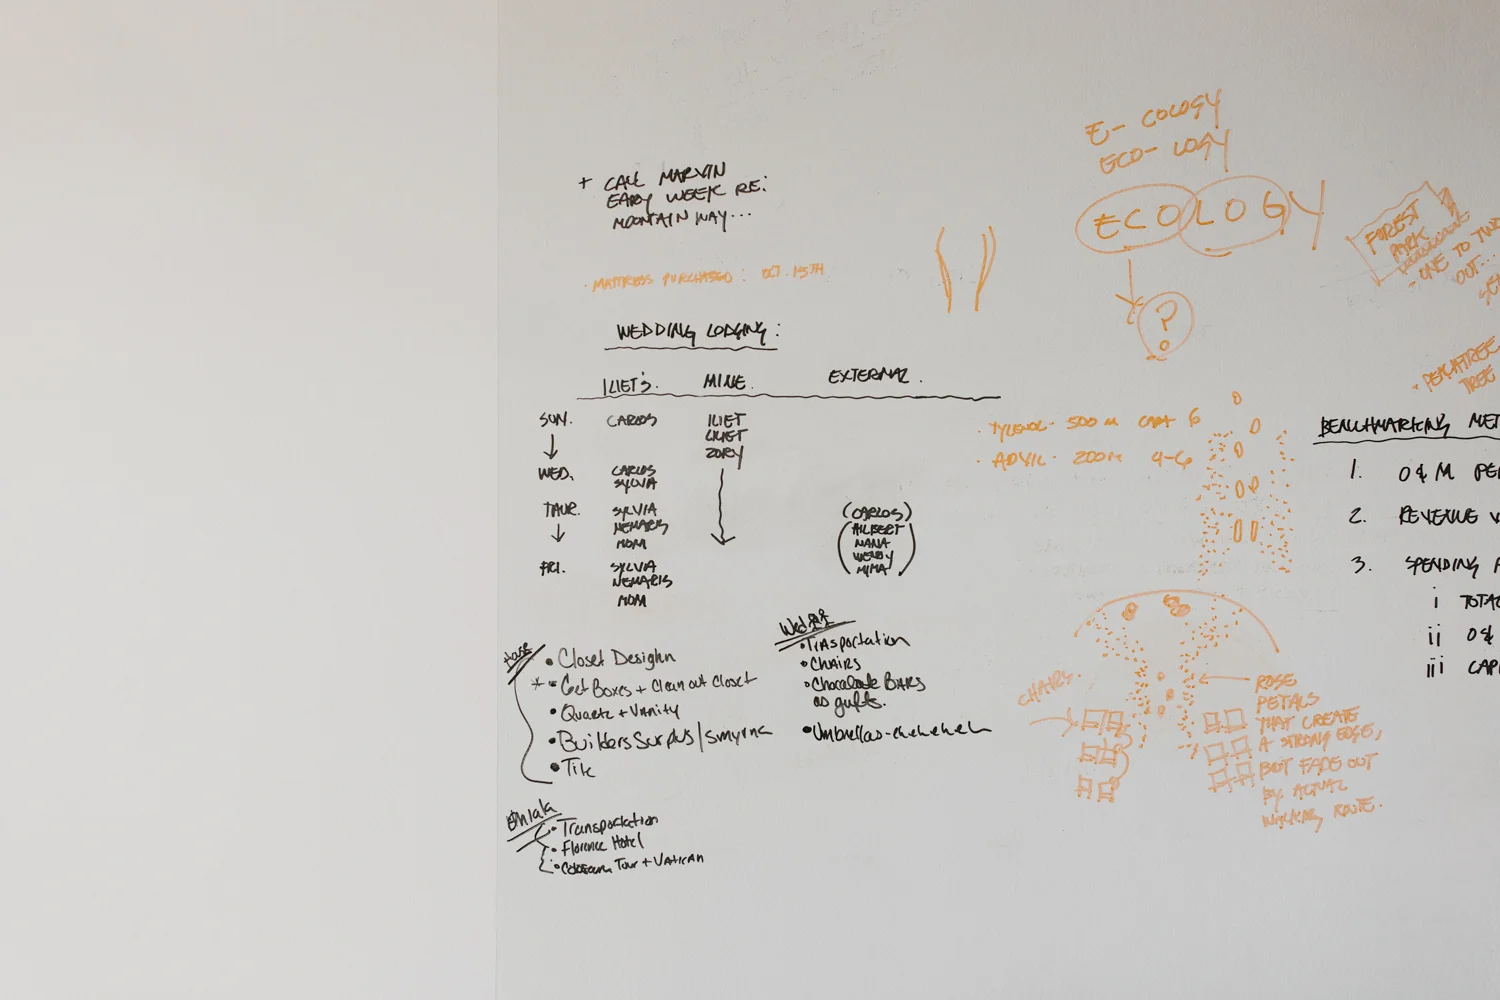 + CALL MARVIN
EARLY WEEK RE:
MOUNTAIN WAY...
· MATTRESS PURCHASED: OCT. 15TH
WEDDING LODGING:
ILIET'S. MINE. EXTERNAL.
SUN. CARLOS ILIET
LILIET
ZORY
WED. CARLOS
SYLVIA
THUR. SYLVIA (CARLOS)
NEMARIS ALBERT
MOM NANA
WENDY
FRI. SYLVIA MIMA
NEMARIS
MOM
• Closet Desighn
* • Get Boxes + Clean out closet
• Quartz + Vanity
• Builders Surplus / Smyrna
• Tile
• Transportation
• Florence Hotel
• Colosseum Tour + Vatican
• Trasportation
• Chairs
• Chocolate Bars
as gifts.
• Umbrellas - eheheheh
E- COLOGY
ECO- LOGY
ECOLOGY
?
FOREST
PARK
- ONE TO TWO
OUT...
· PEACHTREE
TREE
· TYLENOL - 500 m 6
· ADVIL - 200m 4-6
BENCHMARKING MET
1. O&M PE
2. REVENUE V
3. SPENDING
i TOTAL
ii O&
iii CAPI
CHAIRS.
ROSE
PETALS
THAT CREATE
A STRONG EDGE,
BUT FADE OUT
BY ACTUAL
WALKING ROUTE.